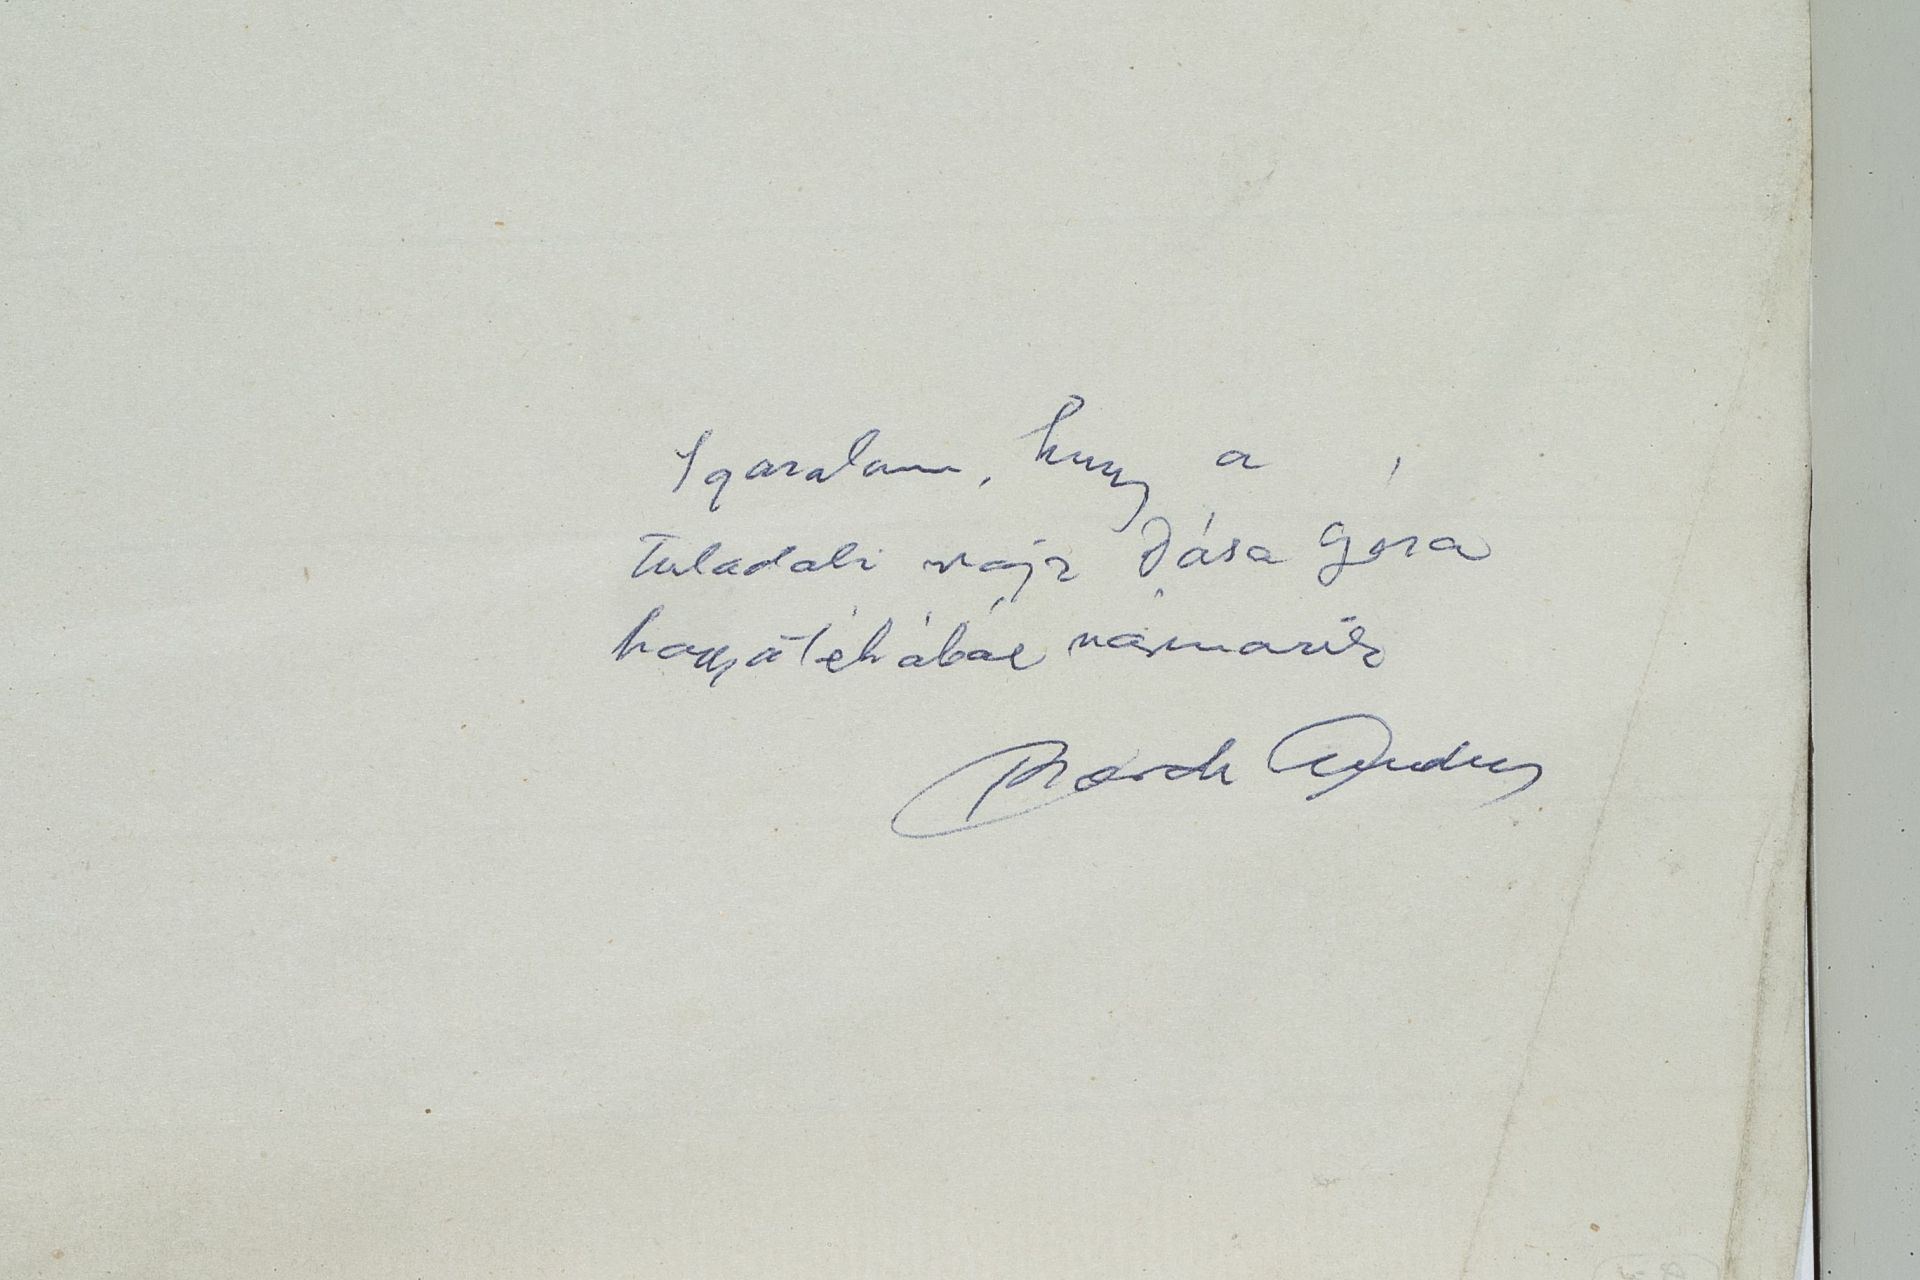 Igazolom, hogy a
túloldali rajz Dósa Géza
hagyatékából származik
Barch Andras